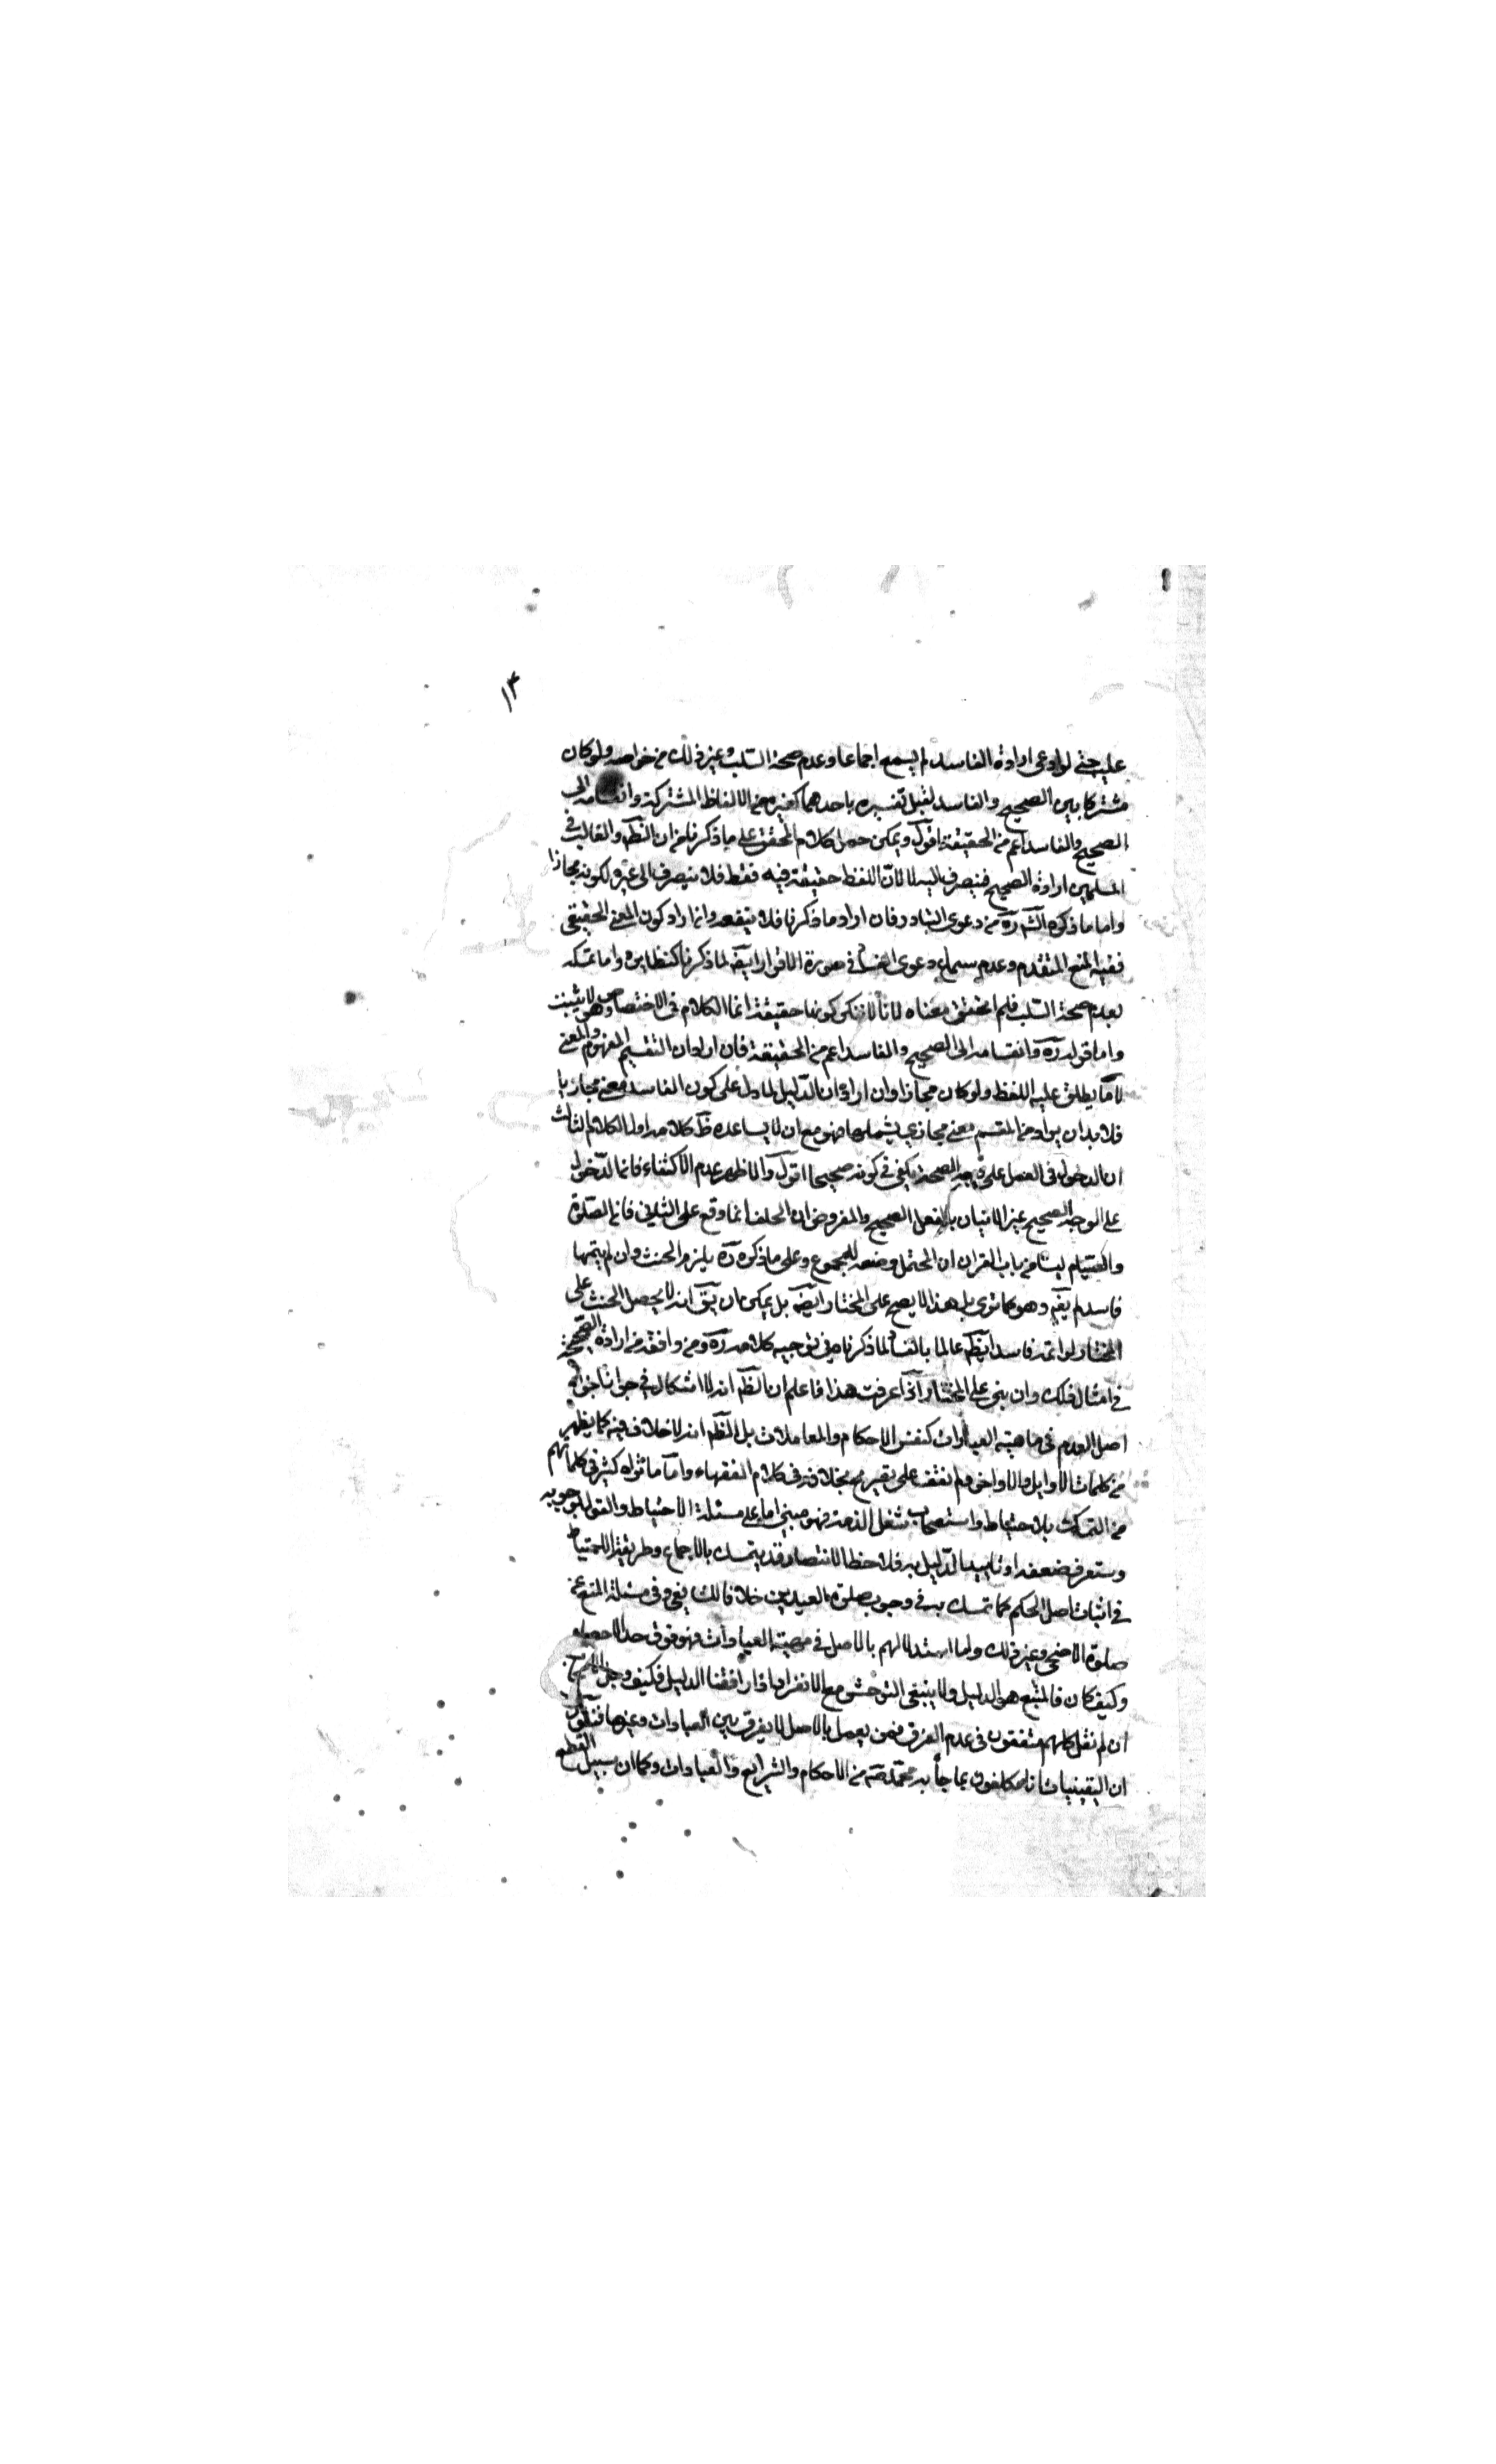 ١٣
عليه حتى لو ادعى ارادة الفاسد لم يسمع اجماعا وعدم صحة السلب وغير ذلك من خواصه ولو كان
مشتركا بين الصحيح والفاسد لقبل تفسيره باحدهما كغيره من الالفاظ المشتركة وانقسامه الى
الصحيح والفاسد اعم من الحقيقة اقول ويمكن حمل كلام المحقق على ما ذكرنا من ان الظ والغالب في
المسلمين ارادة الصحيح فينصرف اليه لا لان اللفظ حقيقة فيه فقط فلا ينصرف الى غيره لكونه مجازا
واما ما ذكره الش ره من دعوى التبادر فان اراد ما ذكرنا فلا ينفعه وان اراد كون المعنى الحقيقي
ففيه المنع المتقدم وعدم سماع دعوى الفسا في صورة الاقرار ايضا لما ذكرنا كنظايره واما تمسكه
بعدم صحة السلب فلم نتحقق معناه لانا لا ننكر كونها حقيقة انما الكلام في الاختصاص وهو لا يثبت
واما قوله ره وانقسامه الى الصحيح والفاسد اعم من الحقيقة فان اراد ان التقسيم للمفهوم والمعنى
لا ما يطلق عليه اللفظ ولو كان مجازا وان اراد ان الدليل لما دل على كون الفاسد معنى مجازيا
فلا بد ان يراد من المقسم معنى مجازي يشملهما فهو مع ان لا يساعده ظ كلامه اول الكلام الثالث
ان الدخول في العمل على وجه الصحة يكفي في كونه صحيحا اقول والاظهر عدم الاكتفاء فان الدخول
على الوجه الصحيح غير الاتيان بالفعل الصحيح والمفروض ان الحلف انما وقع على الثاني فان الصلوة
والصيام ليسا من باب القران ان المحتمل وضعه للمجموع وعلى ما ذكره ره يلزم الحنث وان لم يتمها
فاسد لم يقم وهو كما ترى بل هذا لا يصح على المختار ايضا بل يمكن ان يق انه لا يحصل الحنث على
المختار لو اتمه فاسدا ايضا عالما بالفسا لما ذكرناه في توجيه كلامه ره ومن وافقه من ارادة الصحيحة
في امثال ذلك وان بنى على المختار اذا عرفت هذا فاعلم ان الظ انه لا اشكال في جواز اجراء
اصل العدم في ماهية العبادات كنفس الاحكام والمعاملات بل الظ انه لا خلاف فيه كما يظهر
من كلمات الاوايل والاواخر ولم نقف على تصريح بخلافه في كلام الفقهاء واما ما تراه كثير في كلماتهم
من التمسك بالاحتياط واستصحاب شغل الذمة فهو مبنى اما على مسئلة الاحتياط والقول بوجوبه
وستعرف ضعفه او تاييد الدليل به فلاحظ الانتصار فقد يتمسك بالاجماع وطريقة الاحتياط
في اثبات اصل الحكم كما تمسك به في وجوب صلوة العيدين خلافا للشافعي وفي مسئلة المنع عن
صلوة الاضحى وغير ذلك ولما استدلالهم بالاصل في مهية العبادات فهو فوق حد الاحصاء
وكيف كان فالمتبع هو الدليل ولا ينبغي التوحش مع الانفراد اذا رافقنا الدليل فكيف وجل
ان لم نقل كلهم متفقون في عدم الفرق فمن يعمل بالاصل لا يفرق بين العبادات وغيرها فنقول
ان اليقينيات انا مكلفون بما جاء به محمد ص من الاحكام والشرايع والعبادات وكما ان سبيل القطع